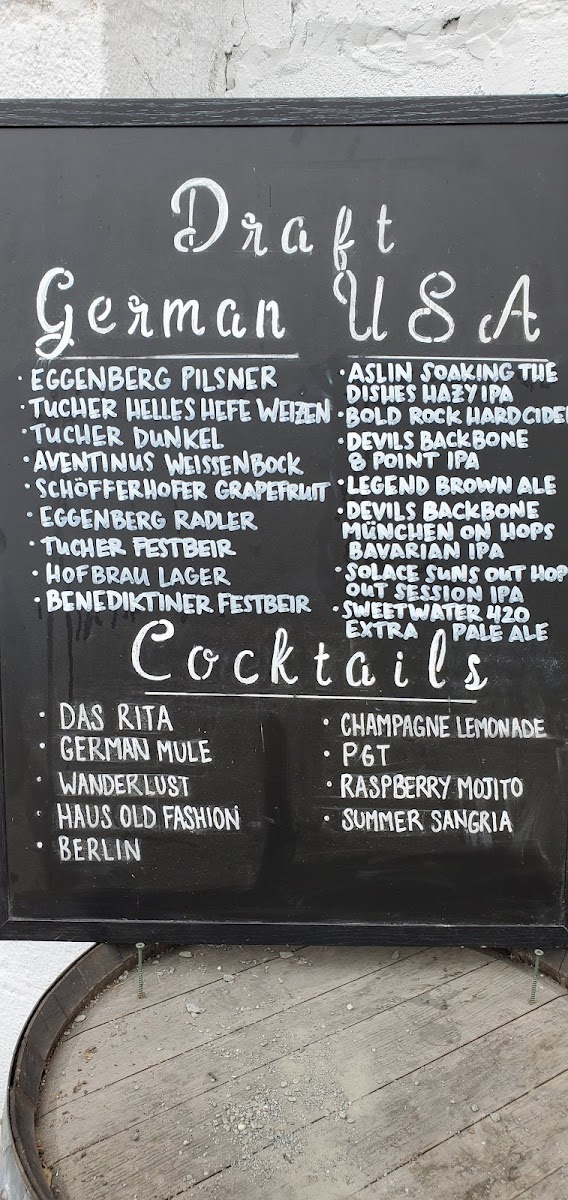 Draft
German
· EGGENBERG PILSNER
· TUCHER HELLES HEFE WEIZEN
· TUCHER DUNKEL
· AVENTINUS WEISSENBOCK
· SCHÖFFERHOFER GRAPEFRUIT
· EGGENBERG RADLER
· TUCHER FESTBEIR
· HOFBRAU LAGER
· BENEDIKTINER FESTBEIR
USA
· ASLIN SOAKING THE
DISHES HAZY IPA
· BOLD ROCK HARD CIDER
· DEVILS BACKBONE
8 POINT IPA
· LEGEND BROWN ALE
· DEVILS BACKBONE
MÜNCHEN ON HOPS
BAVARIAN IPA
· SOLACE SUNS OUT HOP
OUT SESSION IPA
· SWEETWATER 420
EXTRA PALE ALE
Cocktails
· DAS RITA
· GERMAN MULE
· WANDERLUST
· HAUS OLD FASHION
· BERLIN
· CHAMPAGNE LEMONADE
· PGT
· RASPBERRY MOJITO
· SUMMER SANGRIA